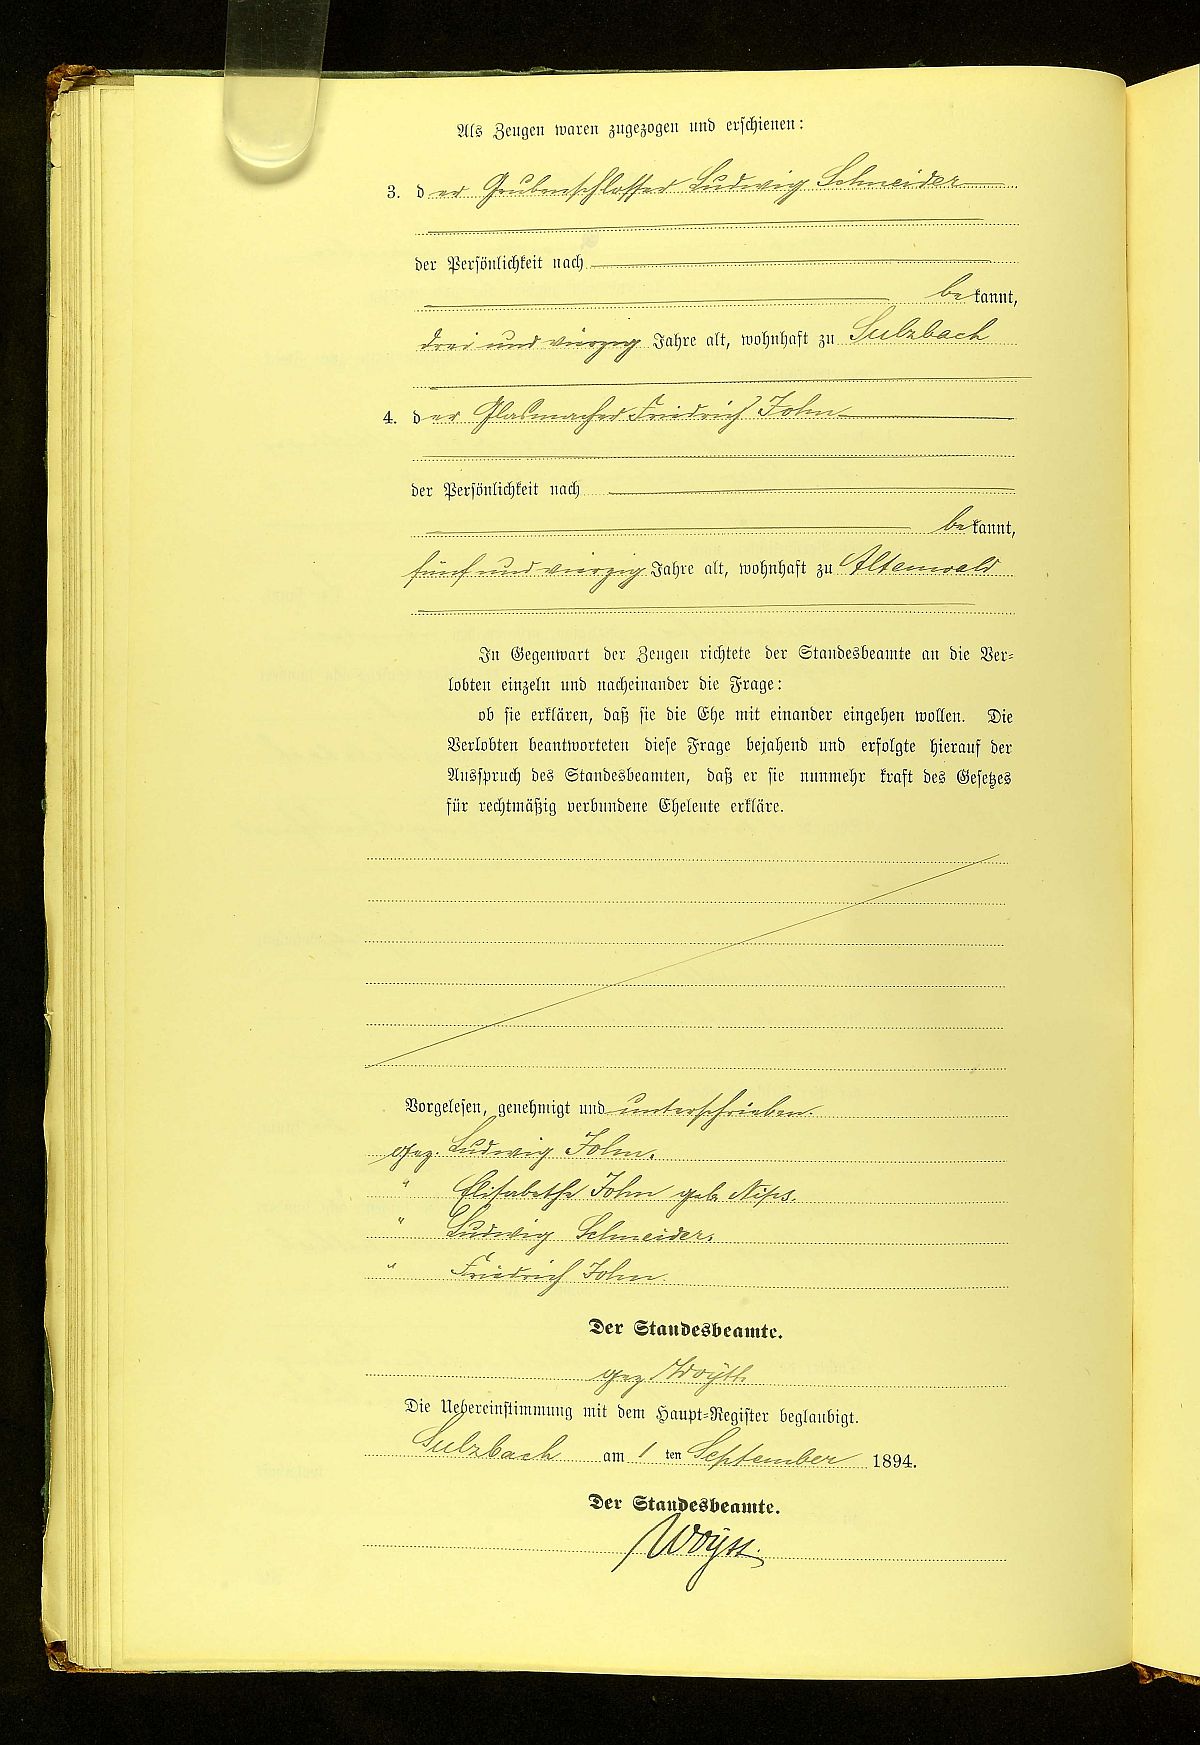 Als Zeugen waren zugezogen und erschienen:
3. der Grubenschlosser Ludwig Schneider
der Persönlichkeit nach
bekannt,
drei und vierzig Jahre alt, wohnhaft zu Sulzbach
4. der Glasmacher Friedrich John
der Persönlichkeit nach
bekannt,
fünf und vierzig Jahre alt, wohnhaft zu Altenwald
In Gegenwart der Zeugen richtete der Standesbeamte an die Ver-
lobten einzeln und nacheinander die Frage:
ob sie erklären, daß sie die Ehe mit einander eingehen wollen. Die
Verlobten beantworteten diese Frage bejahend und erfolgte hierauf der
Ausspruch des Standesbeamten, daß er sie nunmehr kraft des Gesetzes
für rechtmäßig verbundene Eheleute erkläre.
Vorgelesen, genehmigt und unterschrieben.
gez. Ludwig John.
" Elisabetha John geb. Nips.
" Ludwig Schneider.
" Friedrich John.
Der Standesbeamte.
gez
Die Uebereinstimmung mit dem Haupt-Register beglaubigt.
Sulzbach am 1ten September 1894.
Der Standesbeamte.